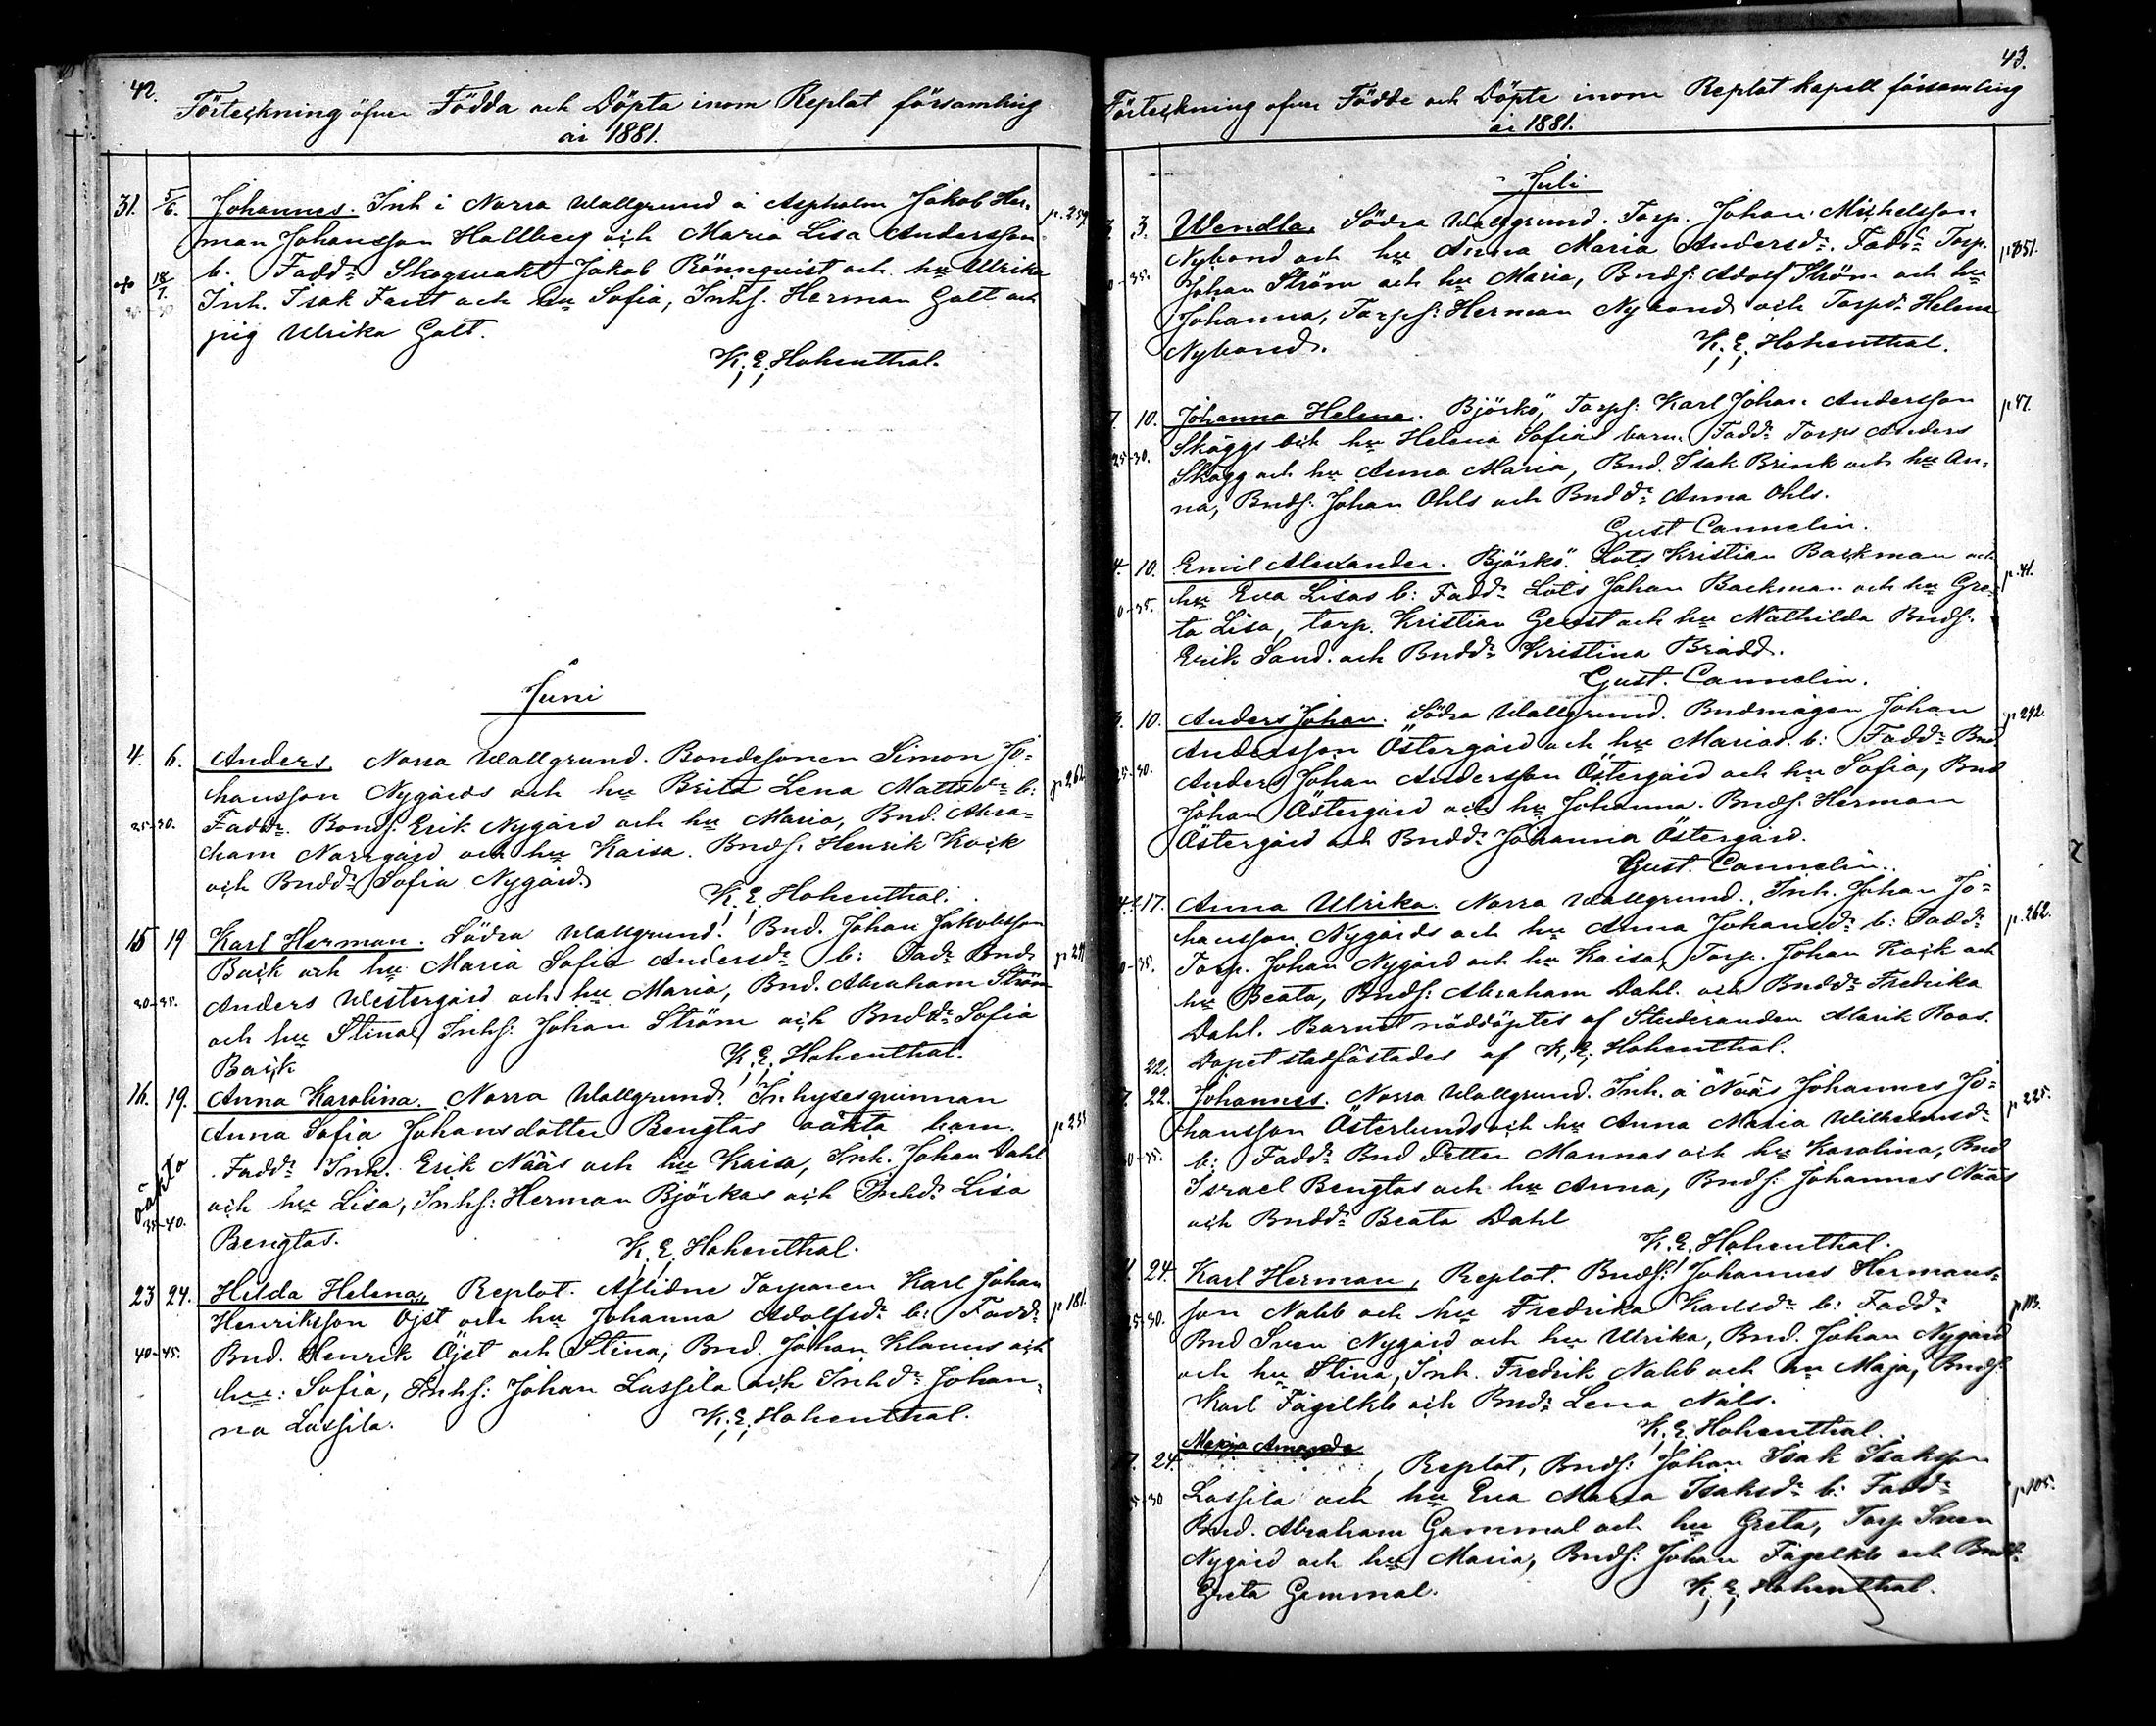 42.
Förteckning öfver Födda och Döpta inom Replot församling
år 1881.
31. 5/6. Johannes. Inh i Norra Wallgrund å Aspholm Jakob Her- p. 259
man Johansson Hallberg och Maria Lisa Andersson
+ 18/7. b. Fadd:r Skogsvakt Jakob Rönnquist och hu Ulrika
Inh. Isak Fant och hu Sofia, Inhs. Herman Galt och
pig Ulrika Galt.
K. E. Hohenthal.
Juni
4. 6. Anders. Norra Wallgrund. Bondesonen Simon Jo=
hansson Nygårds och hu Brita Lena Mattsd:r b: p 262
25-30. Fadd:r Bonds. Erik Nygård och hu Maria, Bnd. Abra=
ham Norrgård och hu Kaisa. Bnds. Henrik Kock
och Bndd:r Sofia Nygård.
K. E. Hohenthal.
15 19 Karl Herman. Södra Wallgrund. Bnd. Johan Jakobsson
Back och hu Maria Sofia Andersd:r b: Fad:r Bnd.
30-35. Anders Westergård och hu Maria, Bnd. Abraham Ström
och hu Stina, Inhs: Johan Ström och Bndd:r Sofia
Back
K. E. Hohenthal.
16. 19. Anna Karolina. Norra Wallgrund. Inhysesqvinnan
Anna Sofia Johansdotter Bengtas oäkta barn.
oäkta Fadd:r Inh. Erik Nääs och hu Kaisa, Inh. Johan Dahl
35-40. och hu Lisa, Inhs: Herman Björkas och Inhd:r Lisa
Bengtas.
K. E. Hohenthal.
23 24. Hilda Helena, Replot. Aflidne Torparen Karl Johan
Henriksson Öjst och hu Johanna Adolfsd:r b: Fadd:r p 181.
40-45. Bnd. Henrik Öjst och Stina, Bnd. Johan Klanus och
hu: Sofia, Inhs: Johan Lassila och Inhd:r Johan-
na Lassila.
K. E. Hohenthal.
43.
Förteckning öfver Födde och Döpte inom Replot kapell församling
år 1881.
Juli
3. Wendla. Södra Wallgrund. Torp. Johan Michelsson
Nybond och hu Anna Maria Andersd:r. Fadd:r Torp. p 351.
-35. Johan Ström och hu Maria, Bnds: Adolf Ström och hu
Johanna, Torps: Herman Nybond och Torpd:r Helena
Nybond.
K. E. Hohenthal.
7. 10. Johanna Helena. Björkö, Torps: Karl Johan Andersson p 47.
Skäggs och hu Helena Sofias barn. Fadd:r Torps Anders
25-30. Skägg och hu Anna Maria, Bnd. Isak Brink och hu An-
na, Bnds. Johan Ohls och Bndd:r Anna Ohls.
Gust Cannelin.
4. 10. Emil Alexander. Björkö. Lots Kristian Backman och p. 41.
-35. hu Eva Lisas b: Fadd:r Lots Johan Backman och hu Gre-
ta Lisa, torp. Kristian Genst och hu Mathilda Bnds:
Erik Sand. och Bndd:r Kristina Brådd.
Gust. Cannelin.
10. Anders Johan. Södra Wallgrund. Bndmågen Johan p 292.
Andersson Östergård och hu Marias. b: Fadd:r Bnd.
25-30. Anders Johan Andersson Östergård och hu Sofia, Bnd
Johan Östergård och hu Johanna. Bnds. Herman
Östergård och Bndd:r Johanna Östergård.
Gust. Cannelin.
17. Anna Ulrika. Norra Wallgrund. Inh. Johan Jo=
hansson Nygårds och hu Anna Johansd:r b: Fadd:r p. 262.
-35. Torp. Johan Nygård och hu Kaisa, Torp. Johan Kack och
hu Beata, Bnds: Abraham Dahl. och Bndd:r Fredrika
Dahl. Barnet nöddöptes af Studeranden Alarik Roos.
22. Dopet stadfästades af K. E. Hohenthal.
7. 22. Johannes. Norra Wallgrund. Inh. å Nääs Johannes Jo=
hansson Österlunds och hu Anna Maria Wilhelmsd:r p 225.
-35. b: Fadd:r Bnd Petter Mannas och hu Karolina, Bnd
Israel Bengtas och hu Anna, Bnds: Johannes Nääs
och Bndd:r Beata Dahl
K. E. Hohenthal.
24. Karl Herman, Replot. Bnds: Johannes Hermans=
25-30. son Nabb och hu Fredrika Karlsd:r b: Fadd:r p 113.
Bnd Sven Nygård och hu Ulrika, Bnd. Johan Nygård
och hu Stina, Inh. Fredrik Nabb och hu Maja, Bnds:
Karl Fågelkle och Bnd:r Lena Nabb.
K. E. Hohenthal.
24. Maja Amanda, Replot, Bnds: Johan Isak Isaksson
-30 Lassila och hu Eva Maria Isaksd:r b: Fadd:r p 105.
Bnd. Abraham Gammal och hu Greta, Torp Sven
Nygård och hu Maria, Bnds: Johan Fågelkle och Bndd:r
Greta Gammal.
K. E. Hohenthal.